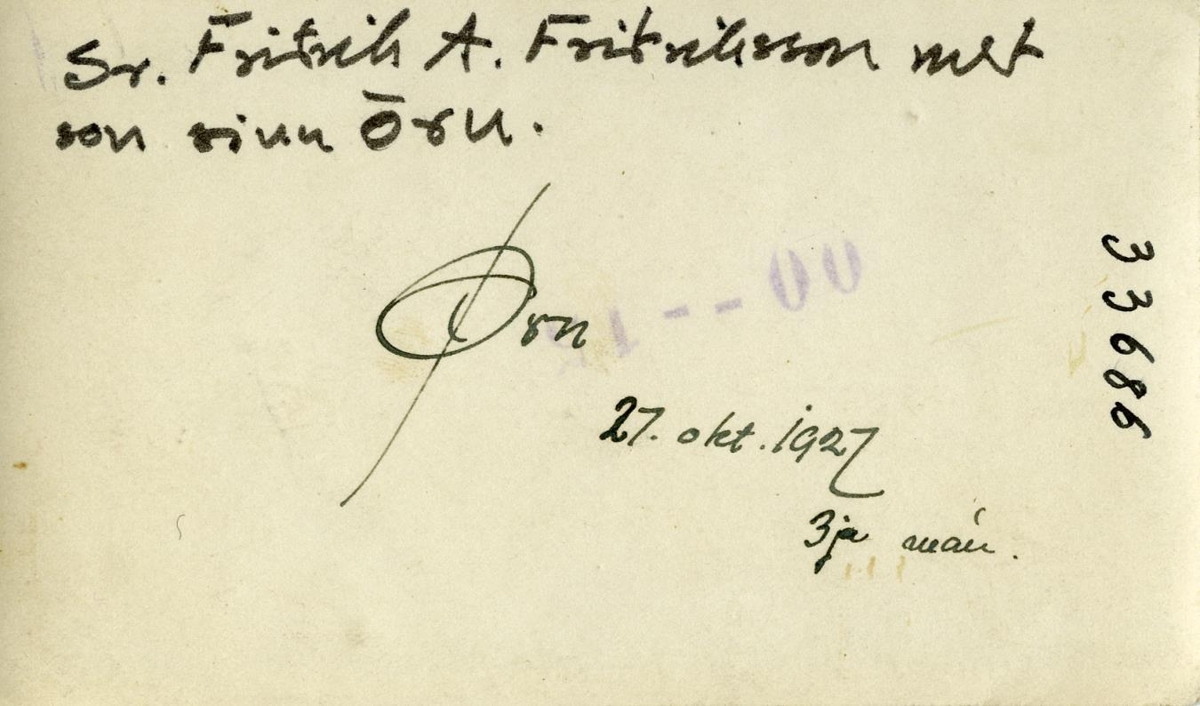 Sr. Friðrik A. Friðriksson með
son sinn Örn.
Örn
27. okt. 1927
3ja mán.
33686